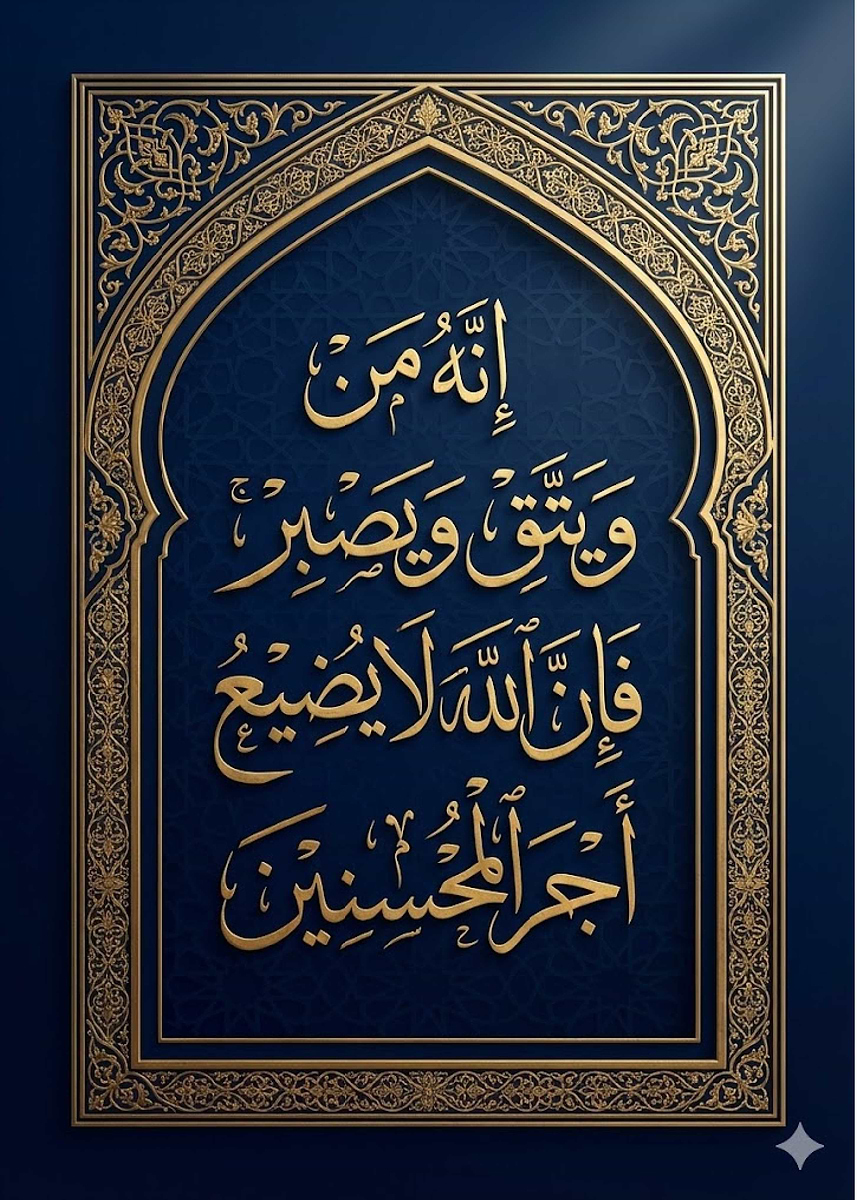 إِنَّهُ مَنْ
وَيَتَّقِْ وَيَصْبِرْ
فَإِنَّ ٱللَّهَ لَا يُضِيْعُ
أَجْرَ ٱلْمُحْسِنِيْنَ